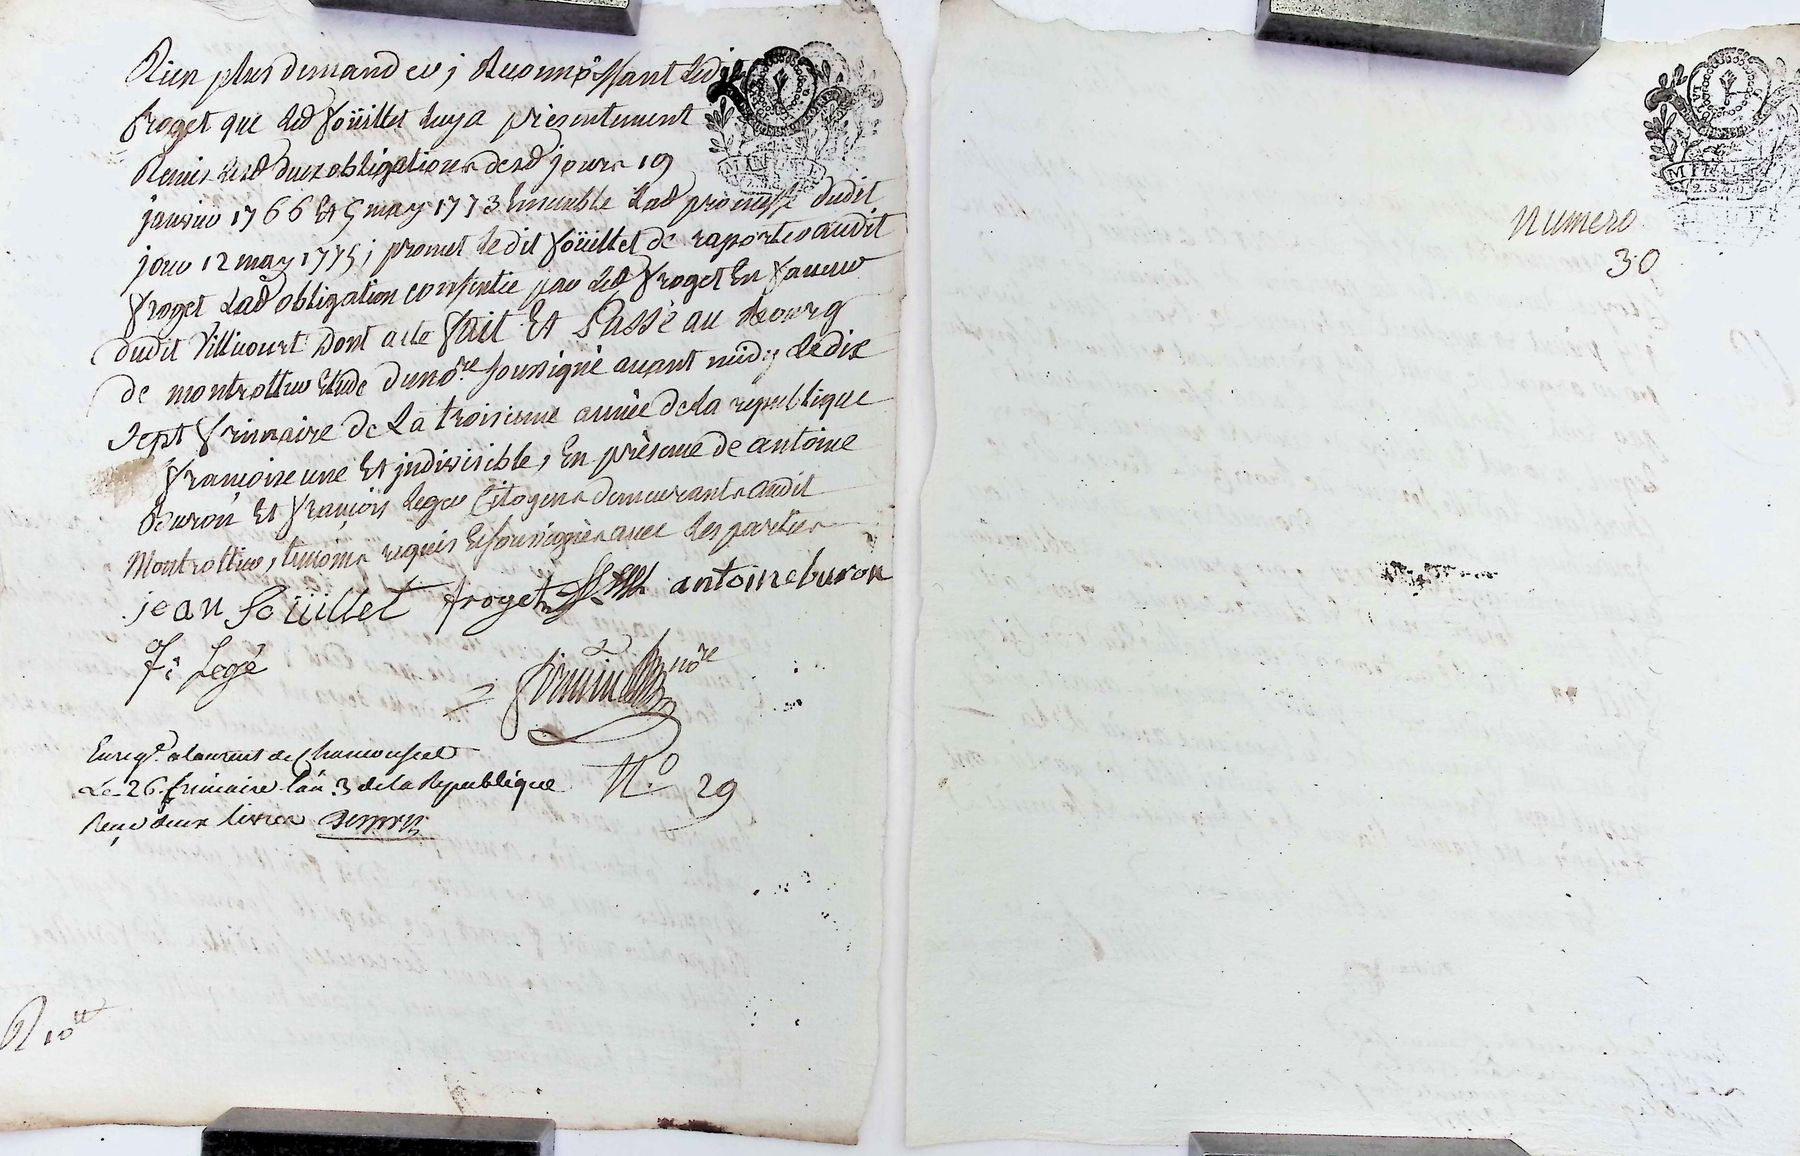 Rien plus demander, Reconnoissant ledit
froget que led foüillet luy a présentement
Remis lesd deux obligations desd jours 19
janvier 1766 et 5 may 1773 Ensemble lad promesse dudit
jour 12 may 1775; promet ledit foüillet de raporter audit
froget lad obligation consentie par led froget En faveur
dudit Villecourt Dont acte fait Et Passé au Bourg
de montrottier Etude du no.re soussigné avant midy le dix
sept frimaire de La troisieme année de la republique
françoise une Et jndivisible, En présence de antoine
Beuron Et françois Leger Citoyens demeurants audit
Montrottier, temoins requis Et soussignés avec les parties
jean foüillet froget antoine buron
f.s Legé
no.re
Enreg.é a laurent de Chamousset
Le 26 frimaire l'an 3 de la Republique
Reçu deux livres
N.o 29
R 10 tt
MINUTE
numero
30
MINUTE